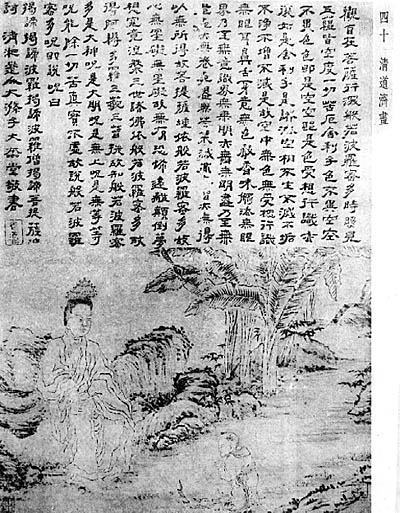 四十 清道濟畫
觀自在菩薩行深般若波羅蜜多時照見
五蘊皆空度一切苦厄舍利子色不異空空
不異色色即是空空即是色受想行識亦
復如是舍利子是諸法空相不生不滅不垢
不淨不增不減是故空中無色無受想行識
無眼耳鼻舌身意無色聲香味觸法無眼
界乃至無意識界無無明亦無無明盡乃至無
老死亦無老死盡無苦集滅道無智亦無得
以無所得故菩提薩埵依般若波羅蜜多故
心無罣礙無罣礙故無有恐怖遠離顛倒夢
想究竟涅槃三世諸佛依般若波羅蜜多故
得阿耨多羅三藐三菩提故知般若波羅蜜
多是大神呪是大明呪是無上呪是無等等
呪能除一切苦真實不虛故說般若波羅
蜜多呪即說呪曰
揭諦揭諦波羅揭諦波羅僧揭諦菩提薩婆
訶 清湘 大滌子大本堂敬書